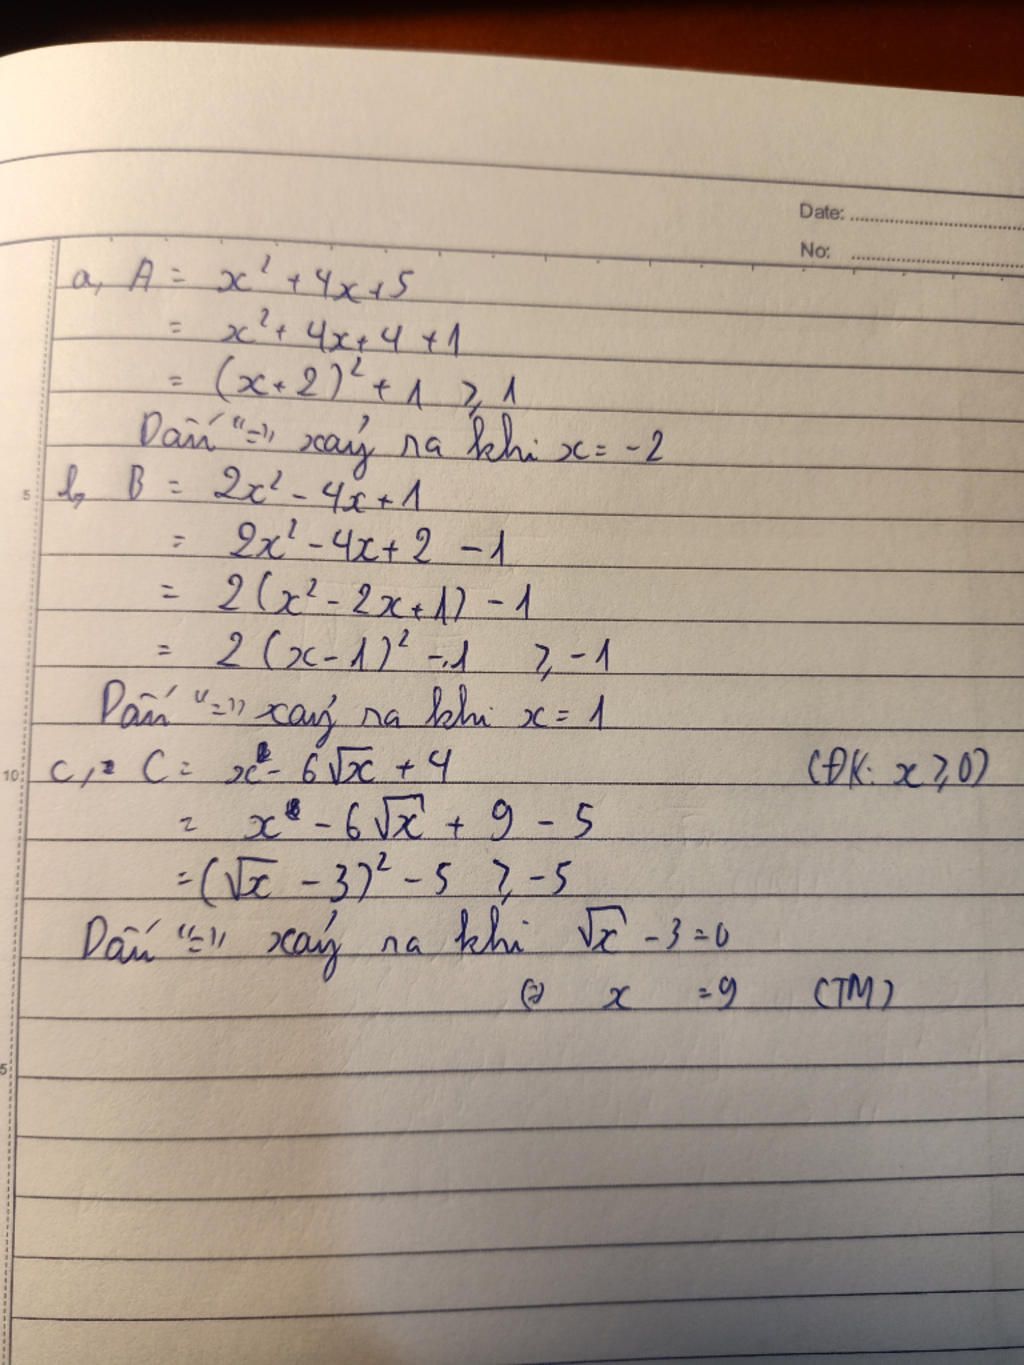 Date:
No:
a, A = x² + 4x + 5
= x² + 4x + 4 + 1
= (x + 2)² + 1 ⩾ 1
Dấu "=" xảy ra khi x = -2
5 b, B = 2x² - 4x + 1
= 2x² - 4x + 2 - 1
= 2(x² - 2x + 1) - 1
= 2(x - 1)² - 1 ⩾ -1
Dấu "=" xảy ra khi x = 1
10 c, C = x - 6√x + 4 (ĐK: x ⩾ 0)
= x - 6√x + 9 - 5
= (√x - 3)² - 5 ⩾ -5
Dấu "=" xảy ra khi √x - 3 = 0
⇔ x = 9 (TM)
5